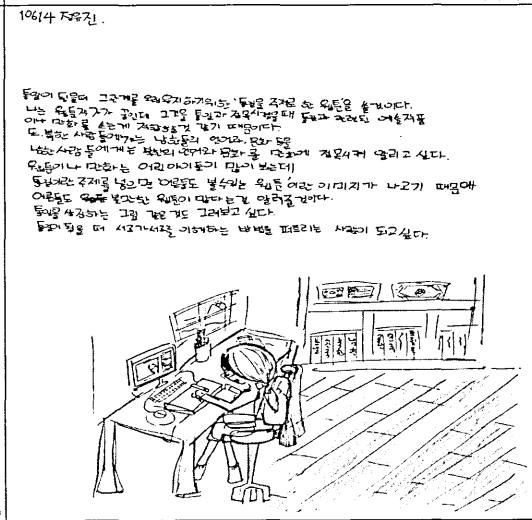 10614 정유진.
통일이 된 후에 그 관계를 오래 유지하기 위한 '통일을 주제로 한 웹툰을 쓸 것이다.
나는 웹툰작가가 꿈인데 그것을 통일과 접목시켰을 때 통일과 관련된 예술작품
이나 만화를 쓰는게 적합할것 같기 때문이다.
또, 북한 사람들에게는 남한의 언어와, 문화 등을
남한사람들에게는 북한의 언어와 문화를 만화에 접목시켜 알리고 싶다.
웹툰이나 만화는 어린아이들이 많이 보는데
통일이란 주제를 넣으면 '어른도 볼수있는 웹툰'이란 이미지가 나오기 때문에
어른들도 볼만한 웹툰이 많다는걸 알려줄것이다.
통일을 상징하는 그림 같은것도 그려보고 싶다.
통일이 됐을 때 서로가 서로를 이해하는 방법을 퍼트리는 사람이 되고싶다.